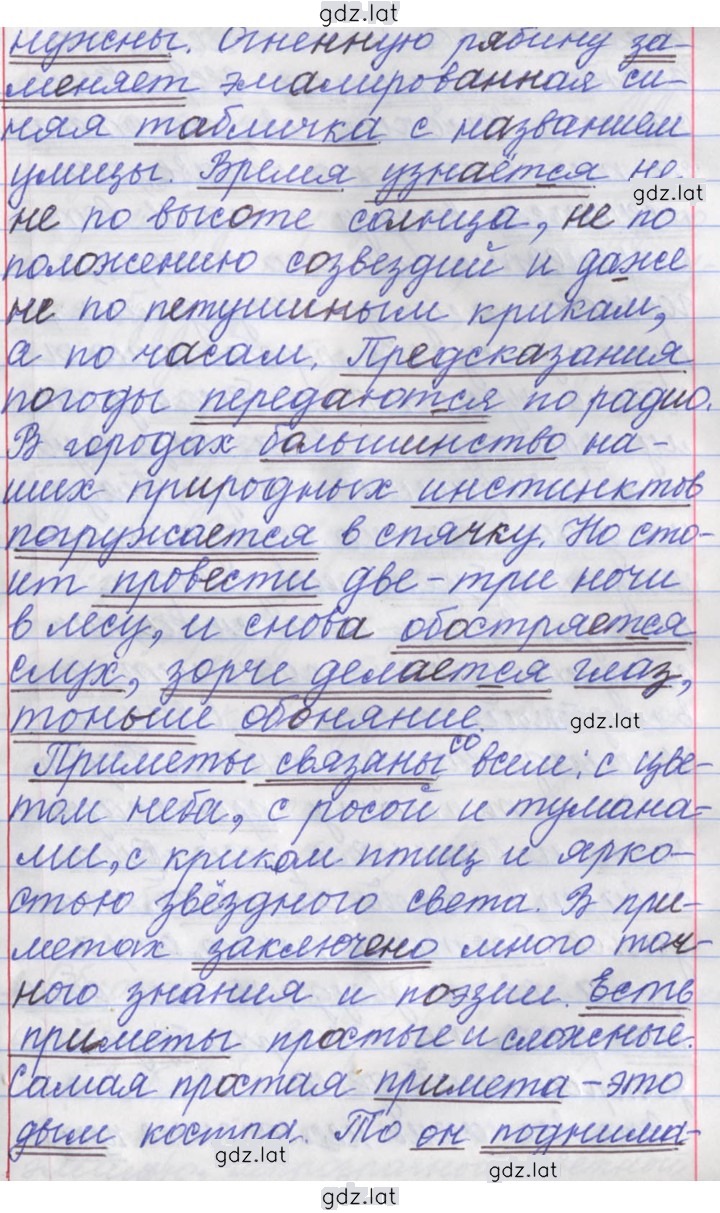 gdz.lat
нужны. Огненную рябину за-
меняет эмалированная си-
няя табличка с названием
улицы. Время узнаётся не
gdz.lat
не по высоте солнца, не по
положению созвездий и даже
не по петушиным крикам,
а по часам. Предсказания
погоды передаются по радио.
В городах большинство на-
ших природных инстинктов
погружается в спячку. Но сто-
ит провести две-три ночи
в лесу, и снова обостряется
слух, зорче делается глаз,
тоньше обоняние.
gdz.lat
Приметы связаны со всем: с цве-
том неба, с росой и тумана-
ми, с криком птиц и ярко-
стью звёздного света. В при-
метах заключено много точ-
ного знания и поэзии. Есть
приметы простые и сложные.
Самая простая примета - это
дым костра. То он поднима-
gdz.lat
gdz.lat
gdz.lat